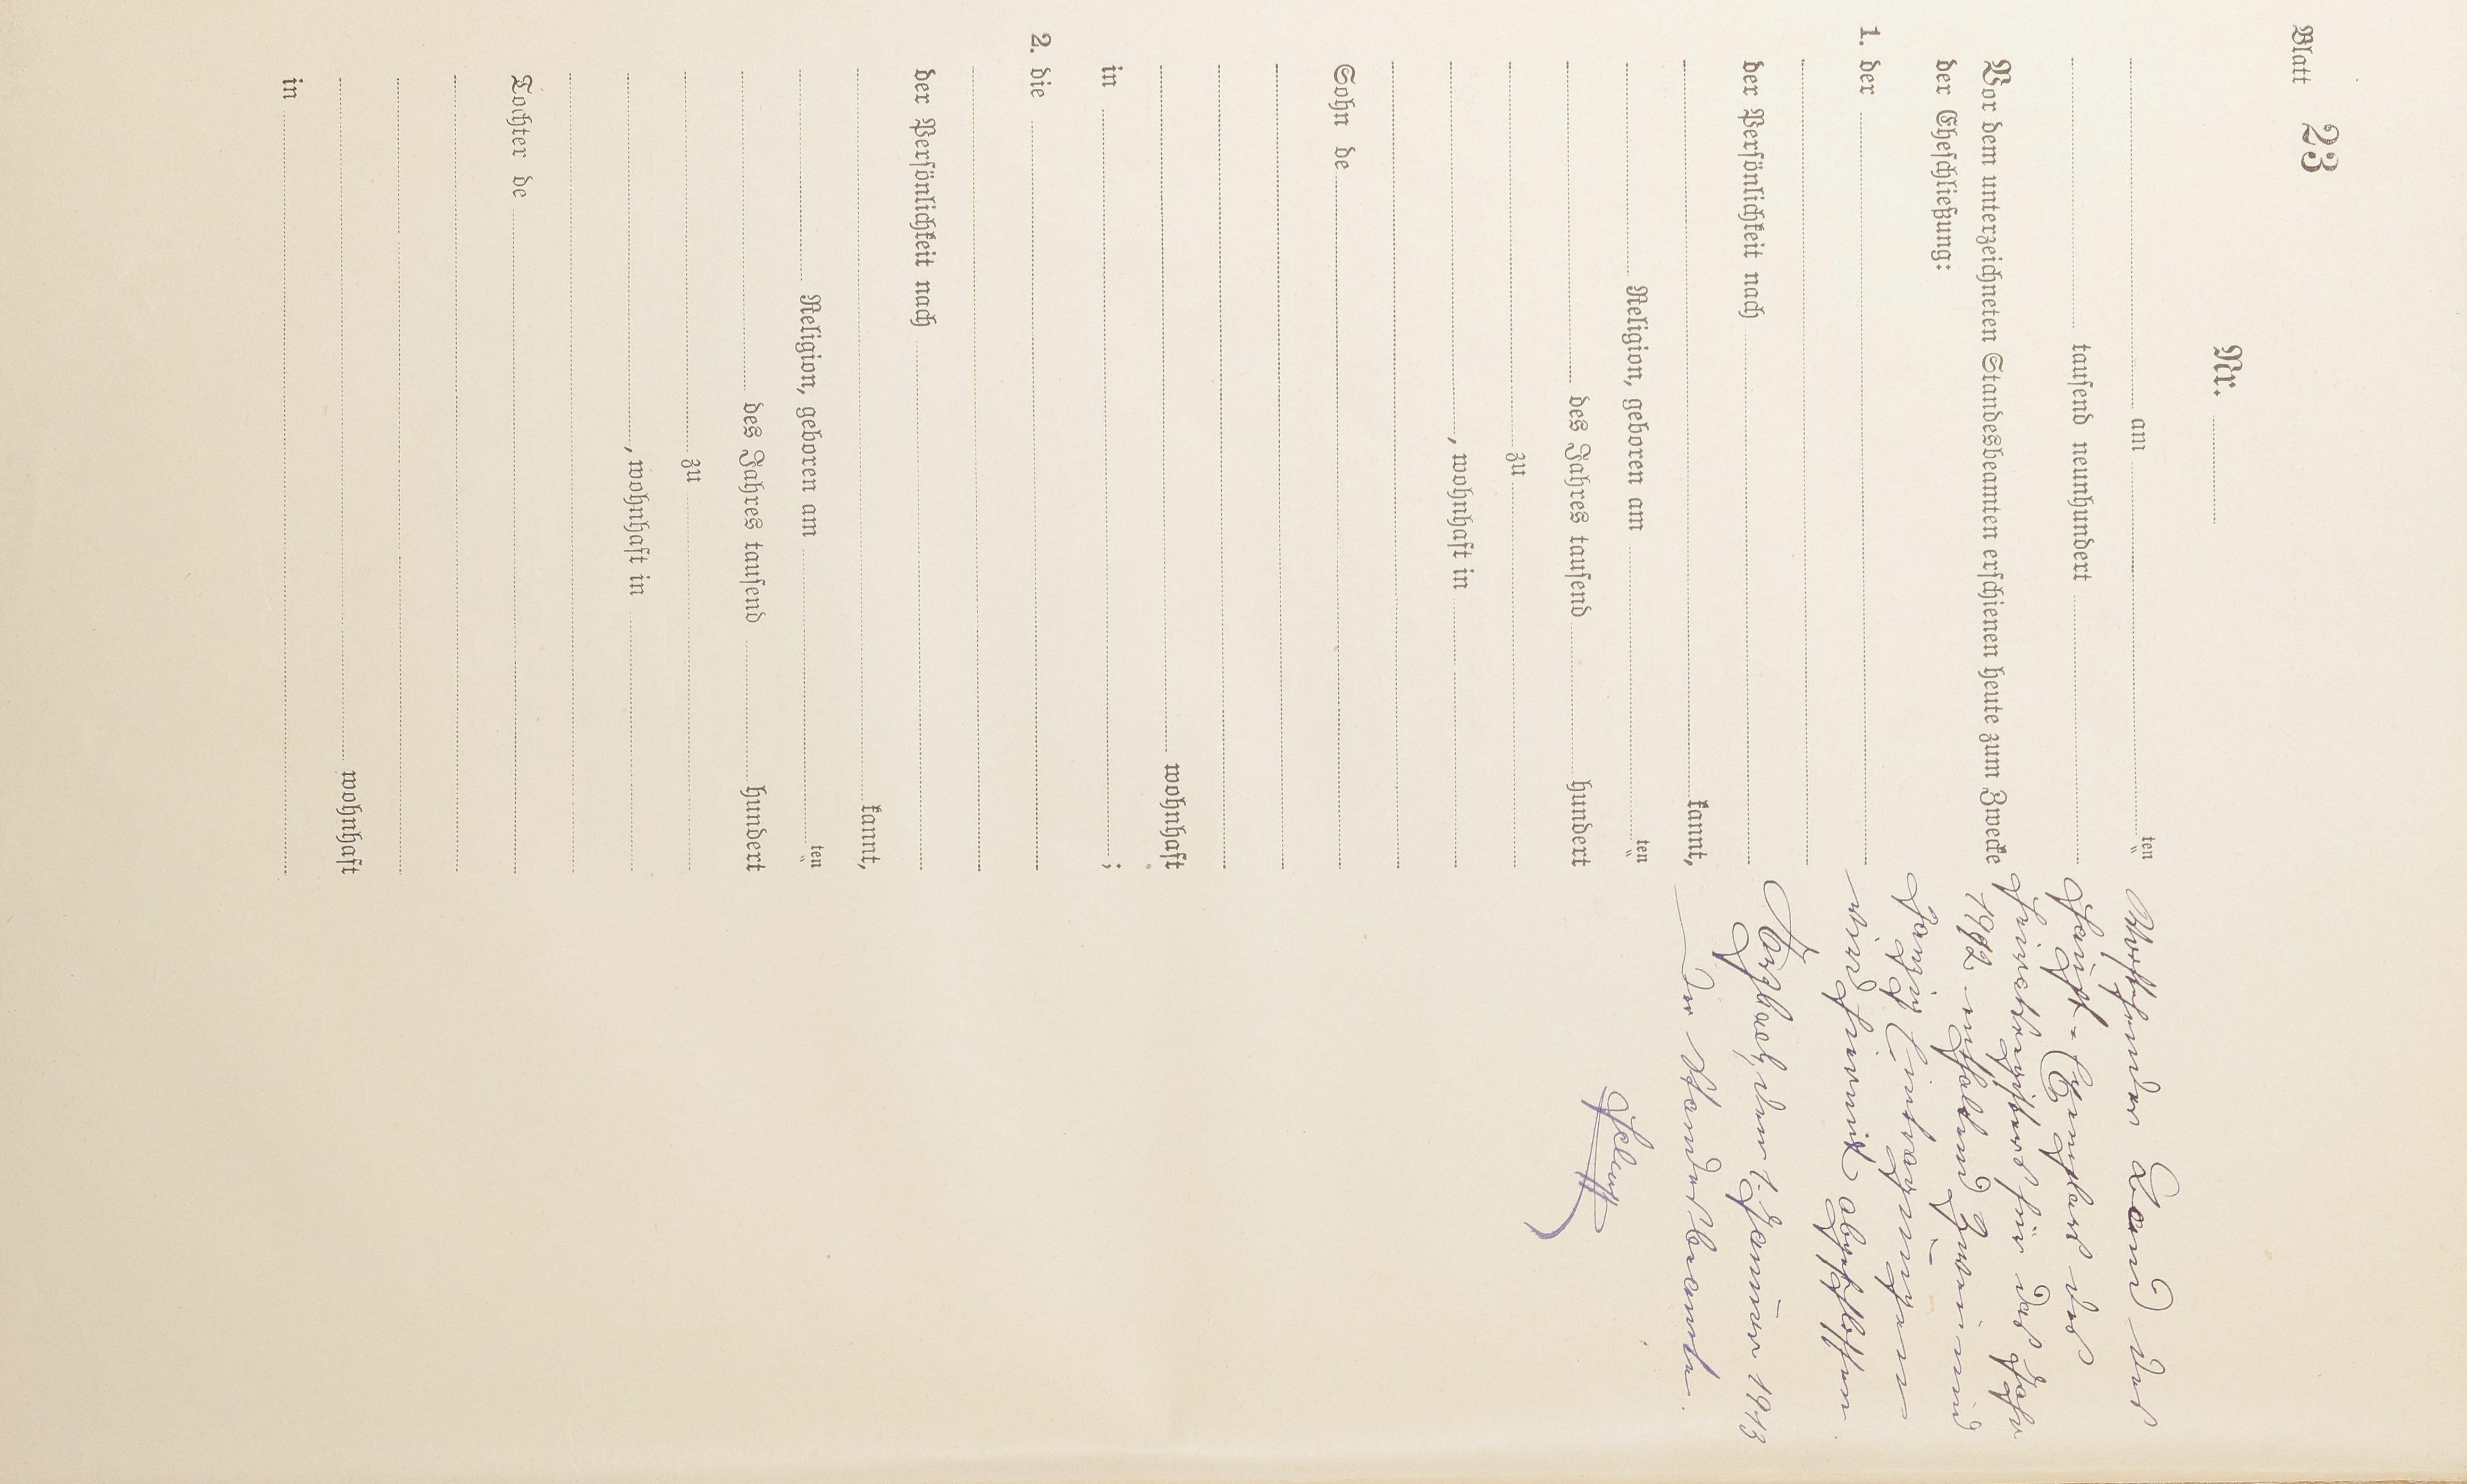 Blatt 23
Nr.
am ten
tausend neunhundert
Vor dem unterzeichneten Standesbeamten erschienen heute zum Zwecke
der Eheschließung:
1. der
der Persönlichkeit nach
kannt,
Religion, geboren am ten
des Jahres tausend hundert
zu
, wohnhaft in
Sohn de
wohnhaft
in ;
2. die
der Persönlichkeit nach
kannt,
Religion, geboren am ten
des Jahres tausend hundert
zu
, wohnhaft in
Tochter de
wohnhaft
in
Vorstehender Band des
Haupt-Exemplars des
Heiratsregisters für das Jahr
1912 enthaltend
Eintragungen
wird hiermit abgeschlossen.
den 1. Januar 1913
Der Standesbeamte.